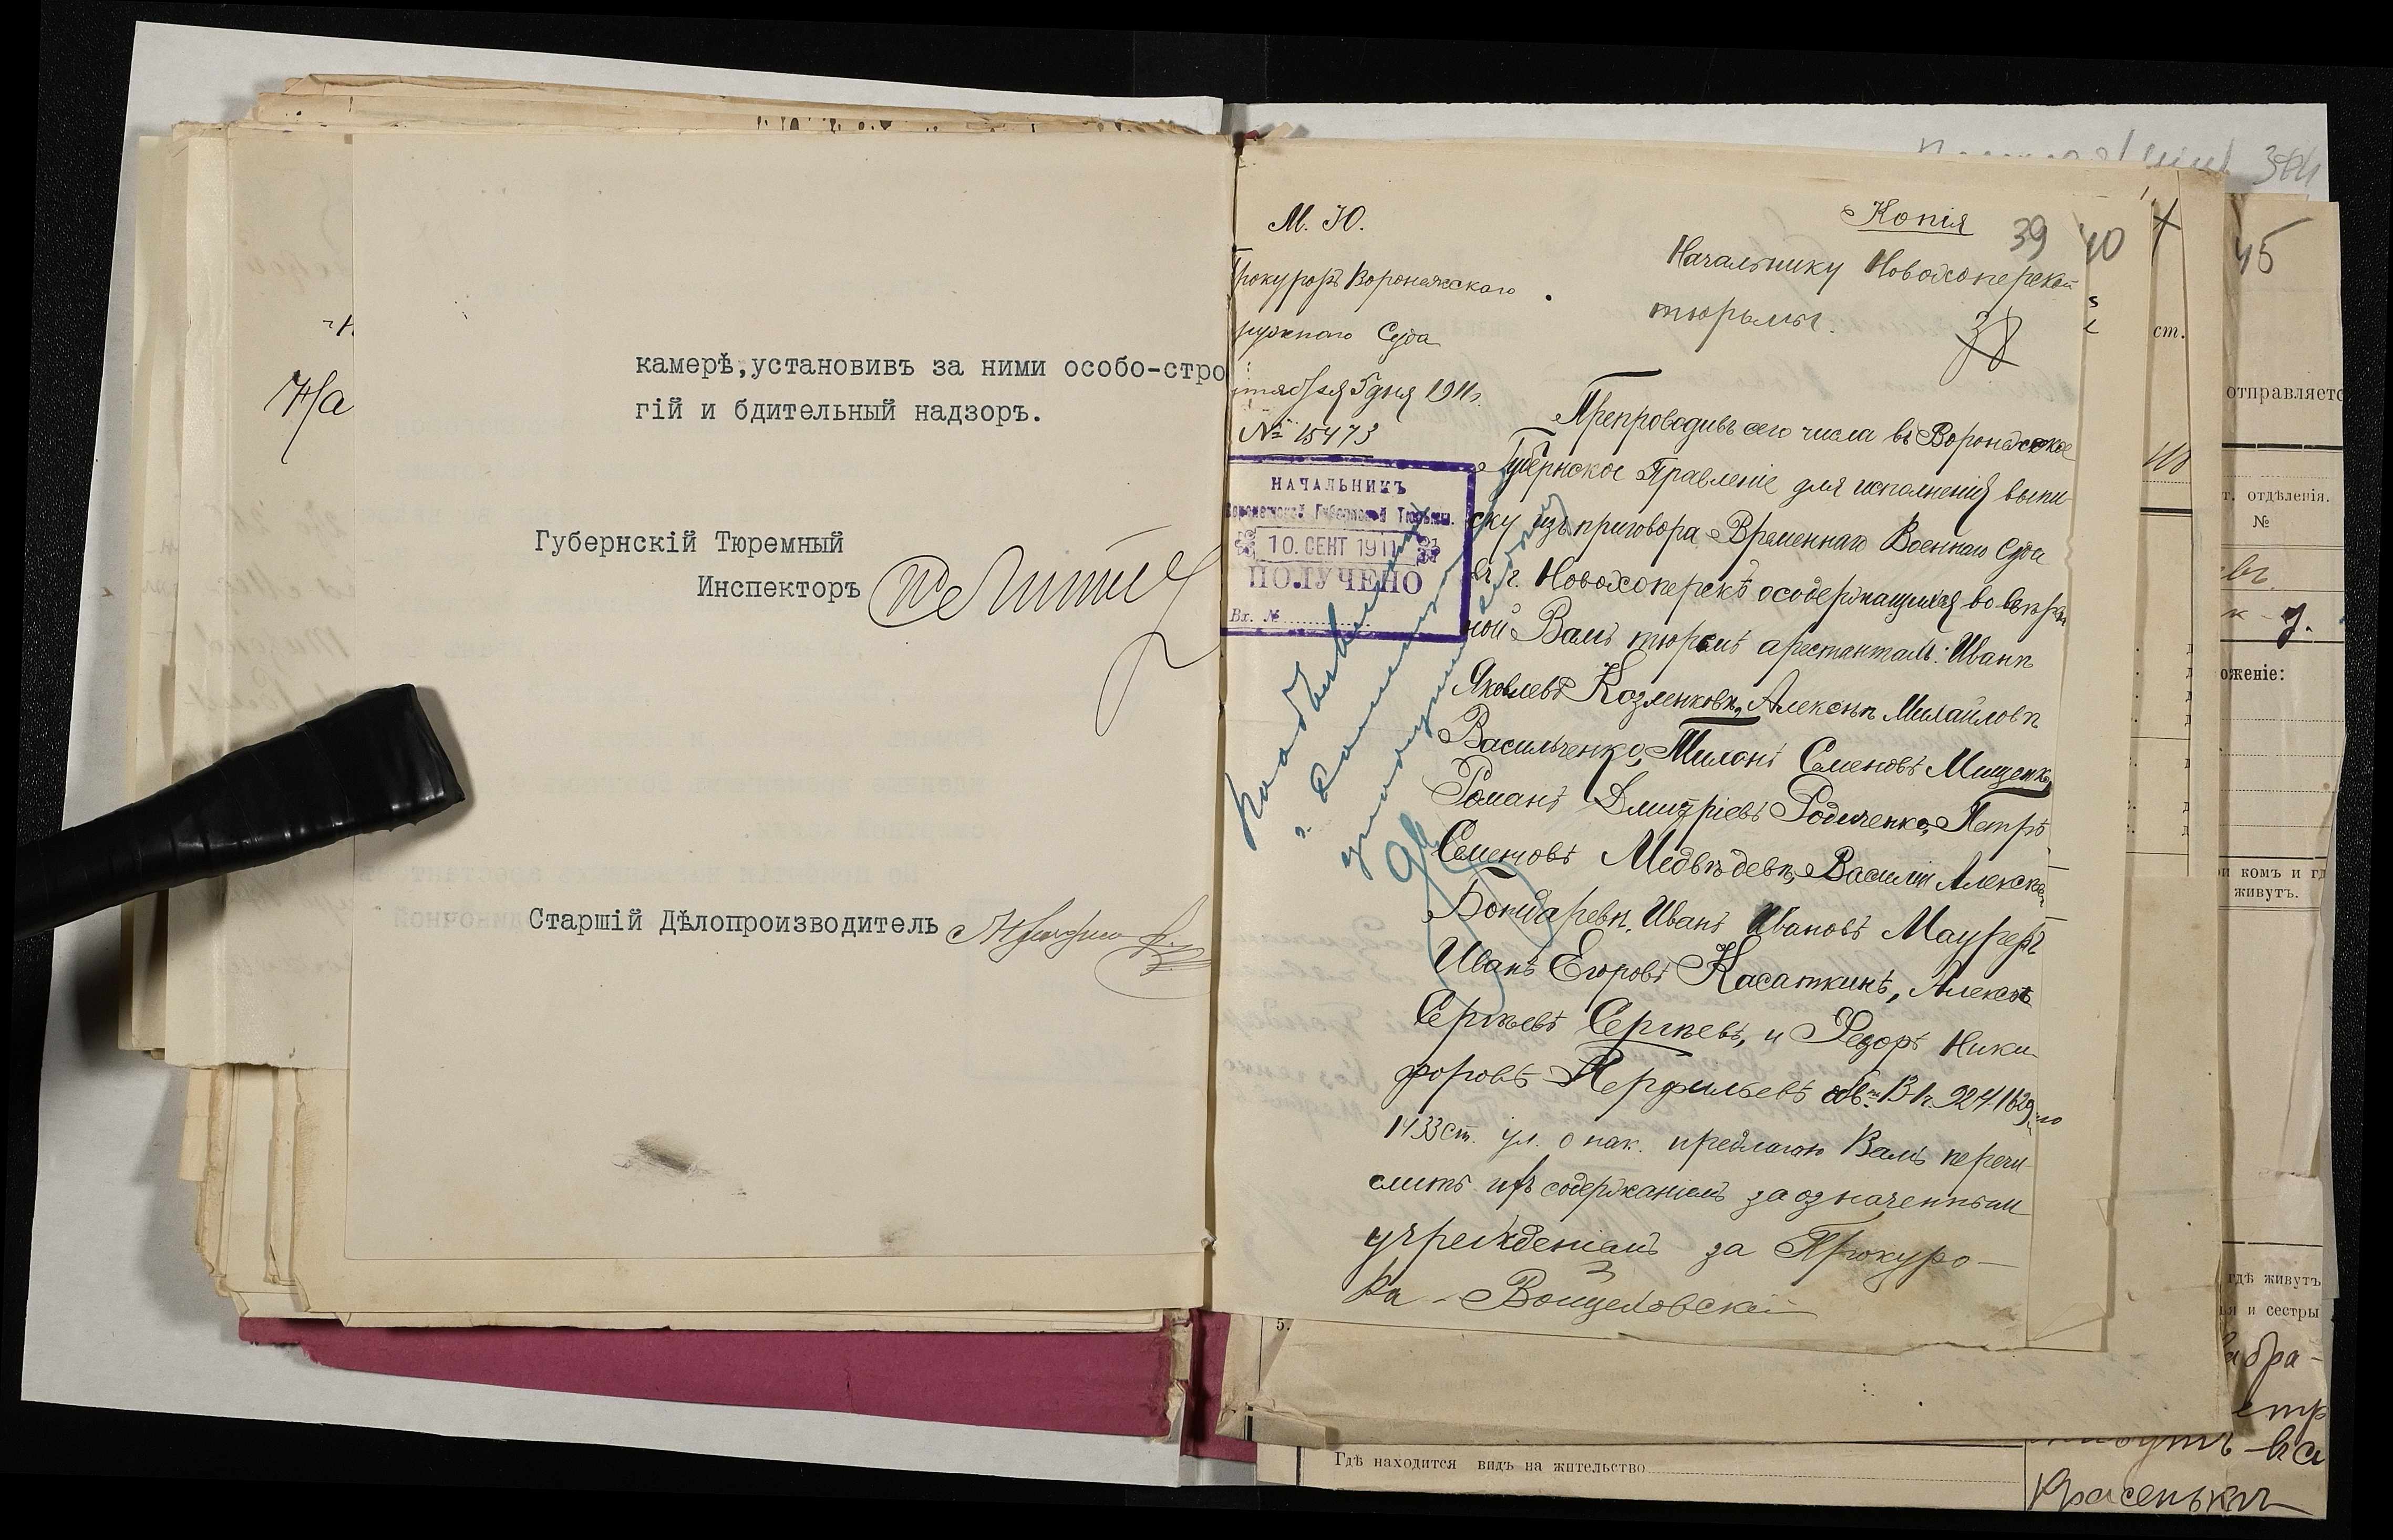 камерѣ,установивъ за ними особо-стро
гій и бдительный надзоръ.
Губернскій Тюремный
Инспекторъ
Старшій Дѣлопроизводитель
На
М. Ю.
Прокуроръ Воронежскаго
Суда
5 дня 1911 г.
№ 15473
НАЧАЛЬНИКЪ
Воронежской Губернской Тюрьмы.
10. СЕНТ 1911
ПОЛУЧЕНО
Вх. №
Копія
39
Начальнику Новохоперской
тюрьмы.
38
Препроводивъ сего числа въ Воронежское
Губернское Правленіе для исполненія выпи
ску изъ приговора Временнаго Военнаго Суда
въ г. Новохоперскѣ о содержащихся во ввѣрен
ной Вамъ тюрьмѣ арестантахъ: Иванѣ
Яковлевѣ Козленковѣ, Алексѣѣ Михайловѣ
Васильченко, Тихонѣ Семеновѣ Мищенко,
Романѣ Дмитріевѣ Родиченко, Петрѣ
Семеновѣ Медвѣдевѣ, Василіи Алексѣ
Бондаревѣ, Иванѣ Ивановѣ Маурерѣ
Иванѣ Егоровѣ Касаткинѣ, Алексѣѣ
Сергѣевѣ Сергѣевѣ, и Федорѣ Ники-
форовѣ Перфильевѣ обв. 13, 1 ч. 924, 1629
1433 ст. ул. о нак. предлагаю Вамъ перечи
слить ихъ содержаніемъ за означеннымъ
учрежденіемъ за Прокуро-
ра - Войцеховскій
40
ст.
45
отправляетс
т. отдѣленія.
№
оженіе:
ри комъ и гд
живутъ.
гдѣ живутъ
ья и сестры
5.
Гдѣ находится видъ на жительство